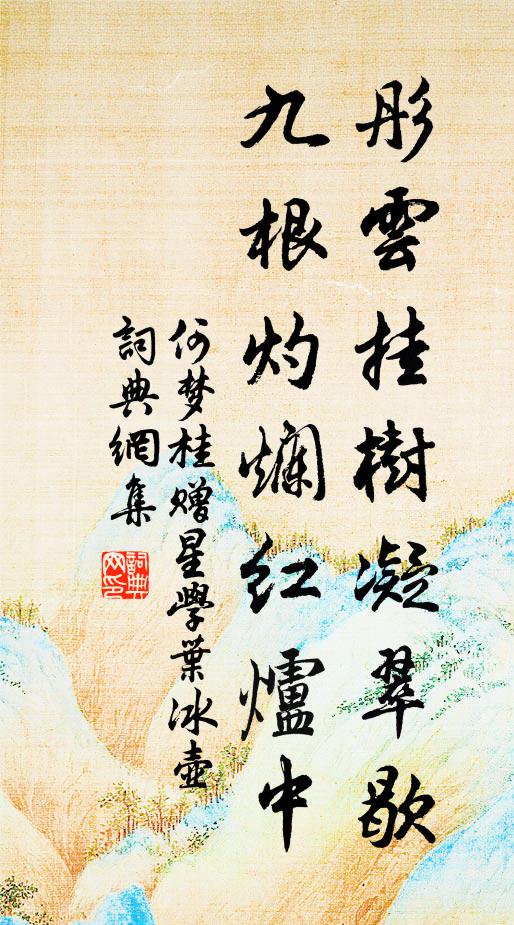 彤雲挂樹凝翠歇
九根灼爛紅爐中
何梦桂贈星學葉冰壺
詞典網集
詞典
网印